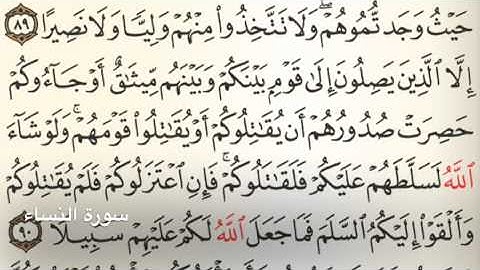 حَيْثُ وَجَدتُّمُوهُمْ ۖ وَلَا تَتَّخِذُوا۟ مِنْهُمْ وَلِيًّا وَلَا نَصِيرًا ٨٩
إِلَّا ٱلَّذِينَ يَصِلُونَ إِلَىٰ قَوْمٍۭ بَيْنَكُمْ وَبَيْنَهُم مِّيثَٰقٌ أَوْ جَآءُوكُمْ
حَصِرَتْ صُدُورُهُمْ أَن يُقَٰتِلُوكُمْ أَوْ يُقَٰتِلُوا۟ قَوْمَهُمْ ۚ وَلَوْ شَآءَ
ٱللَّهُ لَسَلَّطَهُمْ عَلَيْكُمْ فَلَقَٰتَلُوكُمْ ۚ فَإِنِ ٱعْتَزَلُوكُمْ فَلَمْ يُقَٰتِلُوكُمْ
وَأَلْقَوْا۟ إِلَيْكُمُ ٱلسَّلَمَ فَمَا جَعَلَ ٱللَّهُ لَكُمْ عَلَيْهِمْ سَبِيلًا ٩٠
سورة النساء